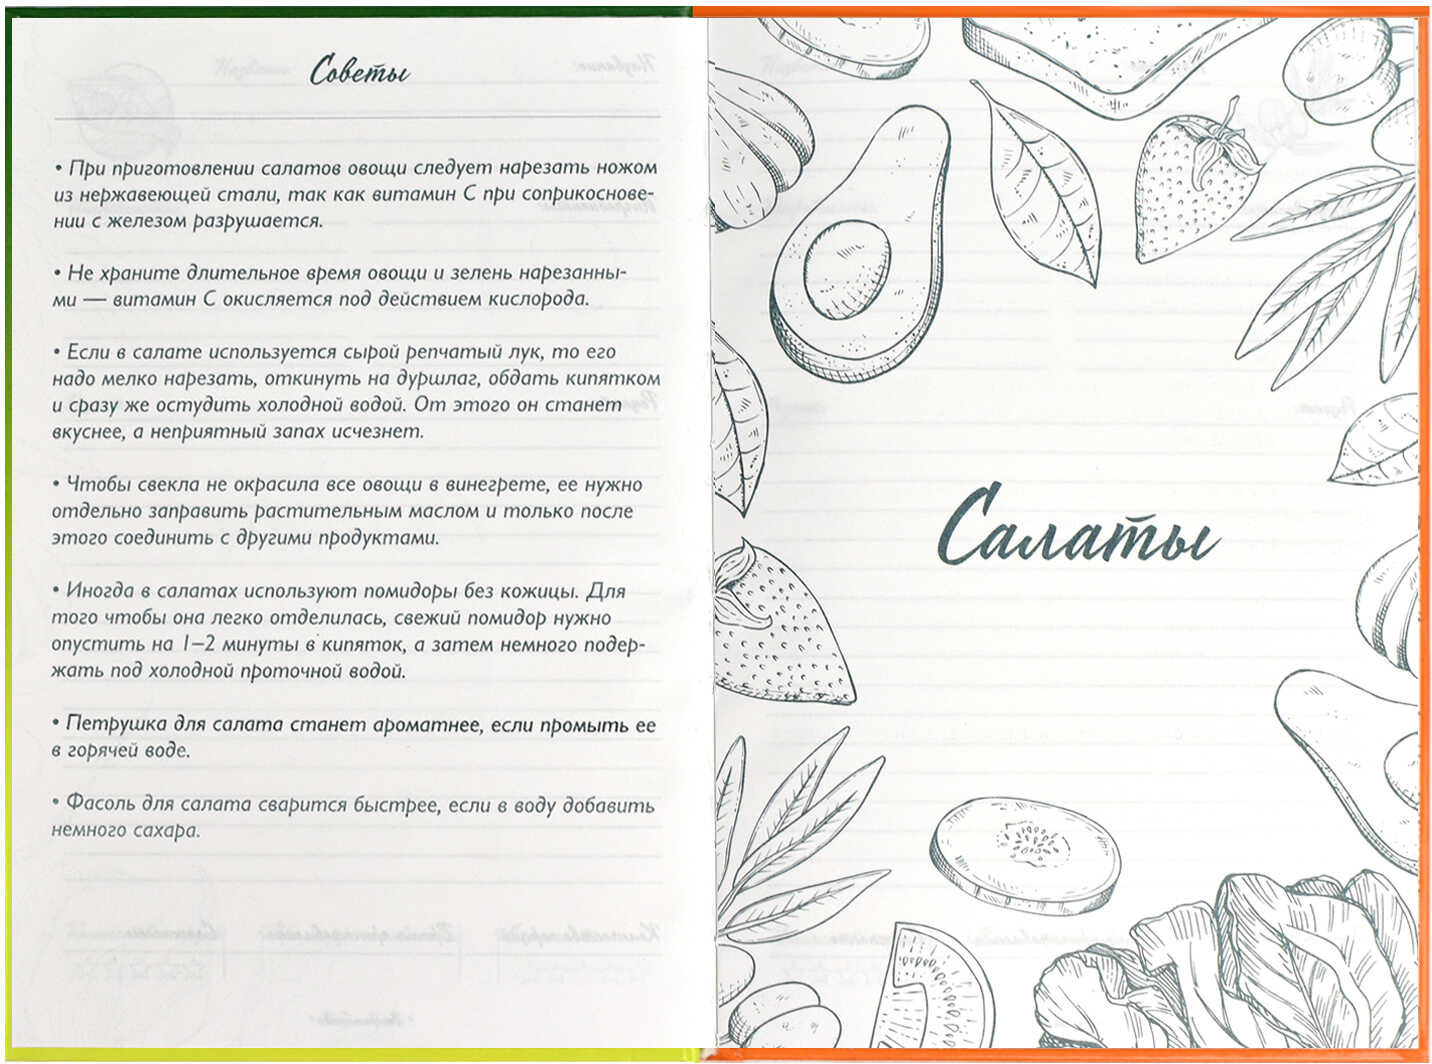 Советы
• При приготовлении салатов овощи следует нарезать ножом
из нержавеющей стали, так как витамин С при соприкоснове-
нии с железом разрушается.
• Не храните длительное время овощи и зелень нарезанны-
ми — витамин С окисляется под действием кислорода.
• Если в салате используется сырой репчатый лук, то его
надо мелко нарезать, откинуть на дуршлаг, обдать кипятком
и сразу же остудить холодной водой. От этого он станет
вкуснее, а неприятный запах исчезнет.
• Чтобы свекла не окрасила все овощи в винегрете, ее нужно
отдельно заправить растительным маслом и только после
этого соединить с другими продуктами.
• Иногда в салатах используют помидоры без кожицы. Для
того чтобы она легко отделилась, свежий помидор нужно
опустить на 1–2 минуты в кипяток, а затем немного подер-
жать под холодной проточной водой.
• Петрушка для салата станет ароматнее, если промыть ее
в горячей воде.
• Фасоль для салата сварится быстрее, если в воду добавить
немного сахара.
Салаты